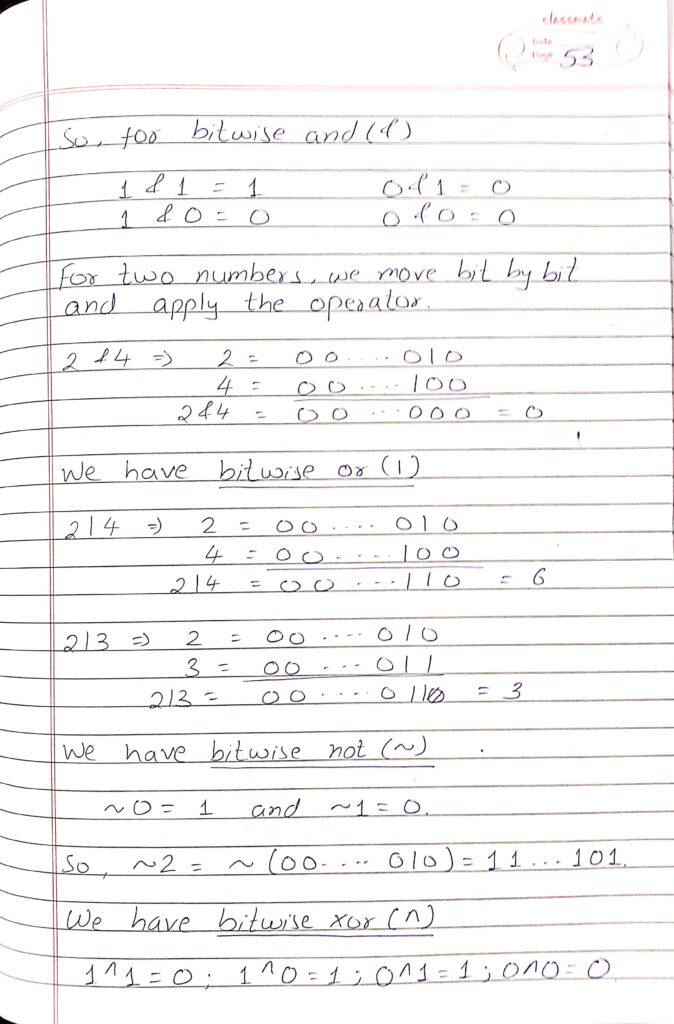 classmate
Date
Page 53
So, for bitwise and (&)
1 & 1 = 1 0 & 1 = 0
1 & 0 = 0 0 & 0 = 0
For two numbers, we move bit by bit
and apply the operator.
2 & 4 => 2 = 00 .... 010
4 = 00 .... 100
2 & 4 = 00 ... 000 = 0
We have bitwise or (|)
2|4 => 2 = 00 .... 010
4 = 00 .... 100
2|4 = 00 ... 110 = 6
2|3 => 2 = 00 .... 010
3 = 00 ... 011
2|3 = 00 .... 011 = 3
We have bitwise not (~)
~0 = 1 and ~1 = 0.
So, ~2 = ~ (00.... 010) = 11 ... 101.
We have bitwise xor (^)
1^1 = 0; 1^0 = 1; 0^1 = 1; 0^0 = 0